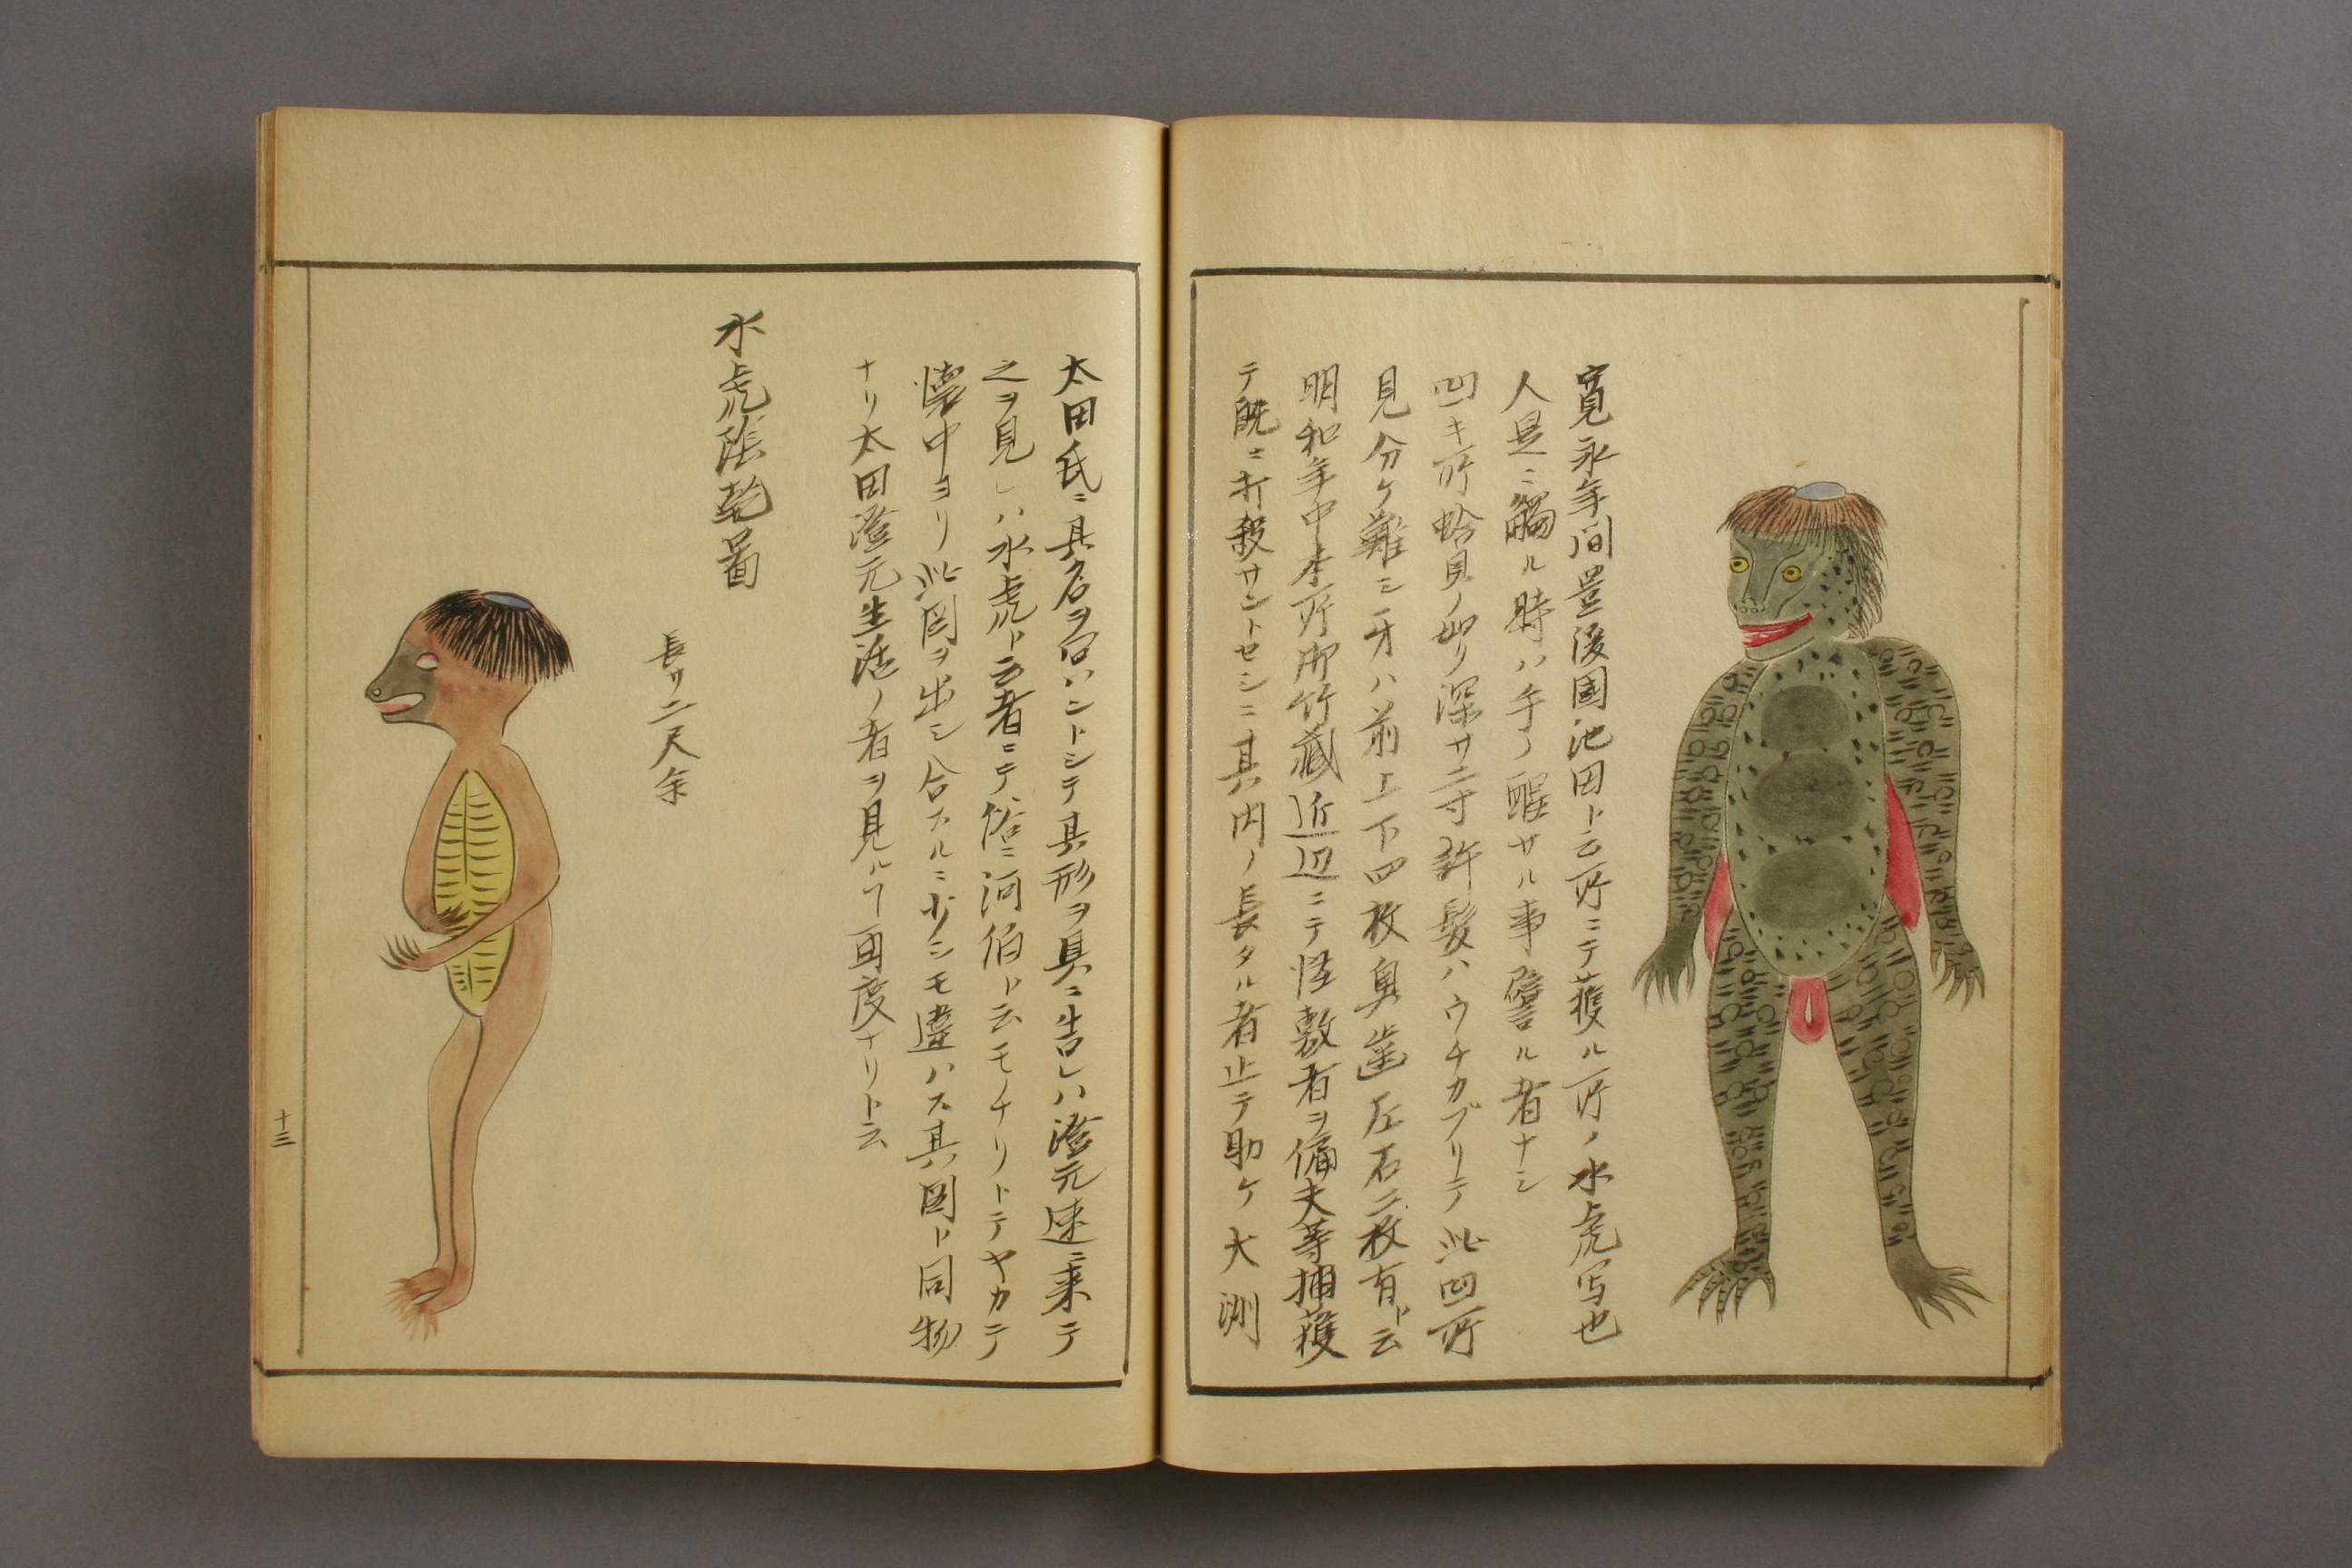 寛永年間豊後国池田ト云所ニテ獲ル所ノ水虎写也
人是ニ觸ル時ハ手ノ腥サル事譬ル者ナシ
凹キ所蛤貝ノ如リ深サ二寸許髪ハウチカブリテ此凹所
見分ケ難シ牙ハ前上下四枚奥歯左右二枚有ト云
明和年中本所御竹蔵近辺ニテ怪敷者ヲ備夫等捕獲
テ既ニ打殺サントセシニ其内ノ長タル者止テ助ケ大洲
太田氏ニ其名ヲ問ハントシテ其形ヲ具ニ告レハ澄元速ニ来テ
之ヲ見レハ水虎ト云者ニテ俗ニ河伯ト云モノナリトテヤカテ
懐中ヨリ此図ヲ出シ合スルニ少シモ違ハス其図ト同物
ナリ太田澄元生活ノ者ヲ見ルヿ両度ナリト云
水虎陰乾啚
長サ二尺余
十三